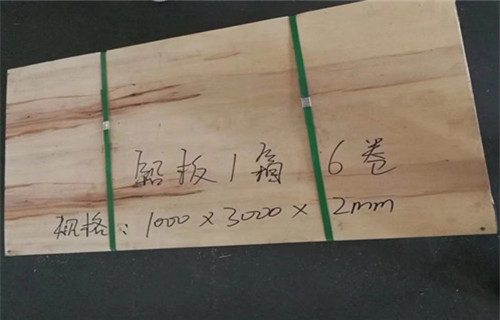 铅板1箱 6卷
规格:1000×3000×2mm